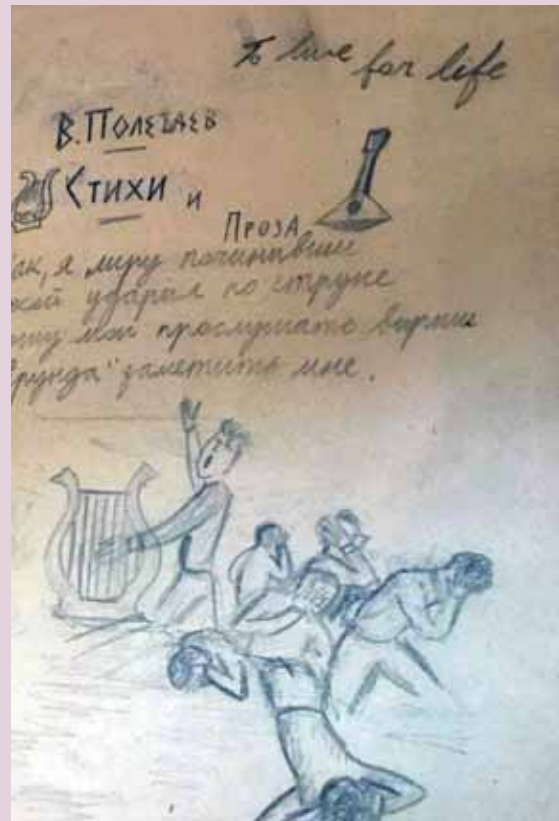 To live for life
В. ПОЛЕТАЕВ
СТИХИ И
ПРОЗА
так, я лиру починивши
ударил по струне
мои прослушать вирши
ерунда" заметить мне.